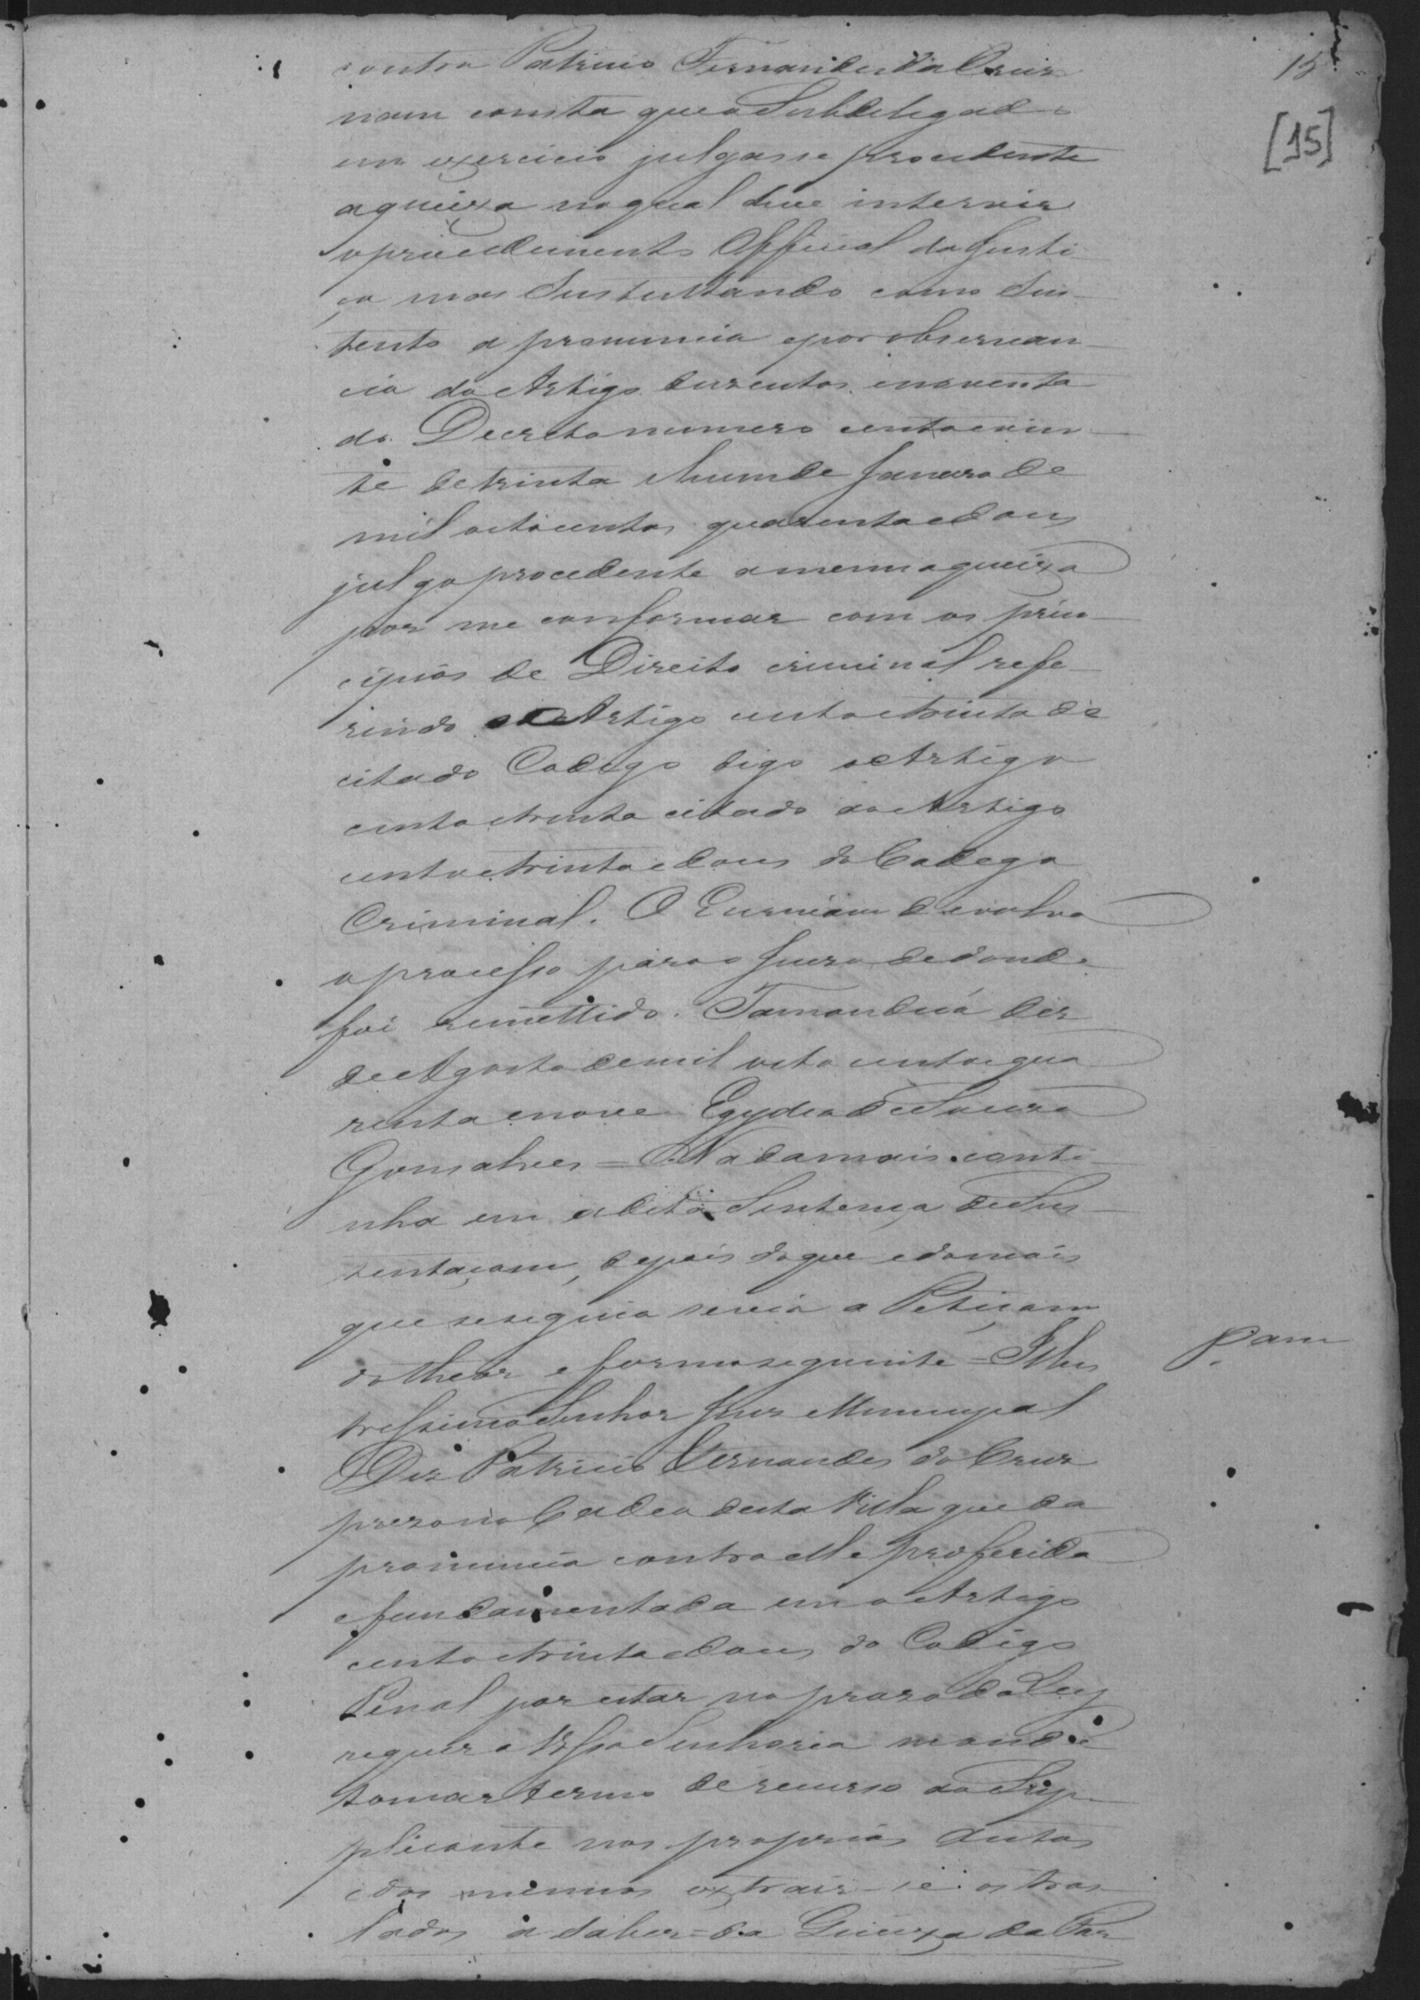 15
[15]
contra Patricio Fernandes da Cruz
nam consta que o Subdelegado
em exercicio julgasse procedente
aqueixa na qual deve intervir
o procedimento Official da Justi-
ça mas Sustentando como Sus-
tento a pronuncia e por observan-
cia do Artigo duzentos enoventa
do Decreto numero cento evin-
te de trinta ehum de Janeiro de
mil oitocentos quarenta edous
julgo procedente amesma queixa
por me conformar com os prin-
cipios de Direito criminal refe-
rindo o Artigo cento etrinta de
citado Codego digo o Artigo
cento etrinta citado ao Artigo
cento etrinta edous do Codego
Criminal. O Escrivam devolva
o processo para o Juizo dedonde
foi remettido. Tamanduá dez
de Agosto demil oito centos equa
renta enove Egydio de Souza
Gonsalves = Nada mais conti-
nha em adita Sentença de Sus-
tentaçam, depois do que edomais
que seseguia sevia a Petiçam
do theor e forma seguinte = Illus
trissimo Senhor Juiz Municipal
Diz Patricio Fernandes da Cruz
prezo na Cadea desta Villa que da
pronuncia contra elle proferida
efundamentada em o Artigo
cento etrinta edous do Codigo
Penal por estar no prazo da Ley
requer a Vossa Senhoria mande
tomar termo de recurso ao Sup-
plicante nos proprios autos
edos mesmos extrair-se os tras
lados a saber = da Queixa da Par
Pam